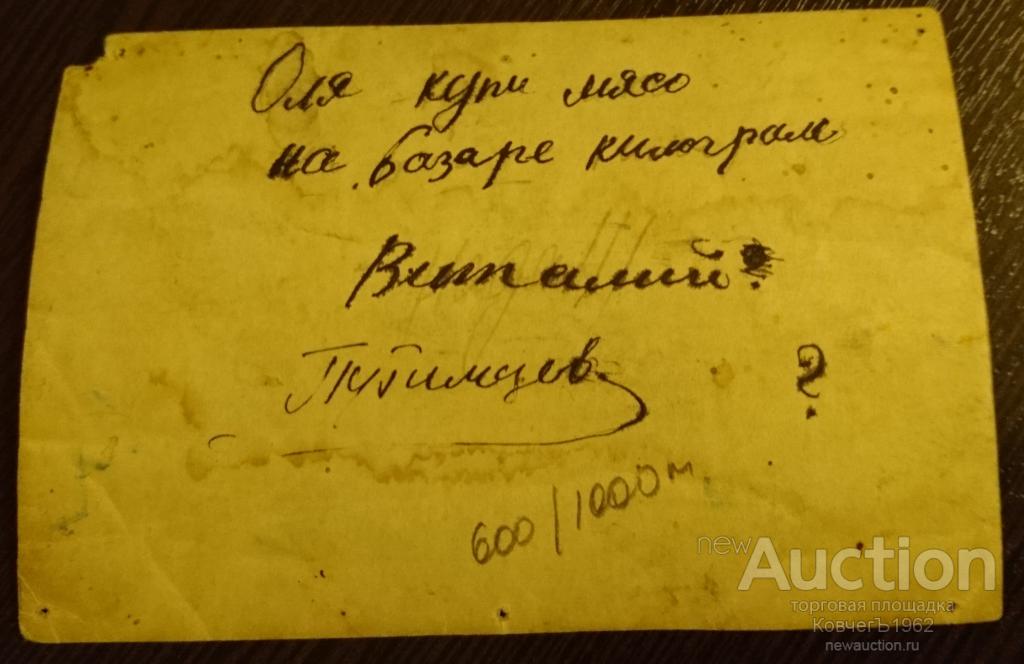 Оля купи мясо
на базаре килограм
Виталий?
?
600/1000 м
new Auction
торговая площадка
КовчегЪ1962
newauction.ru